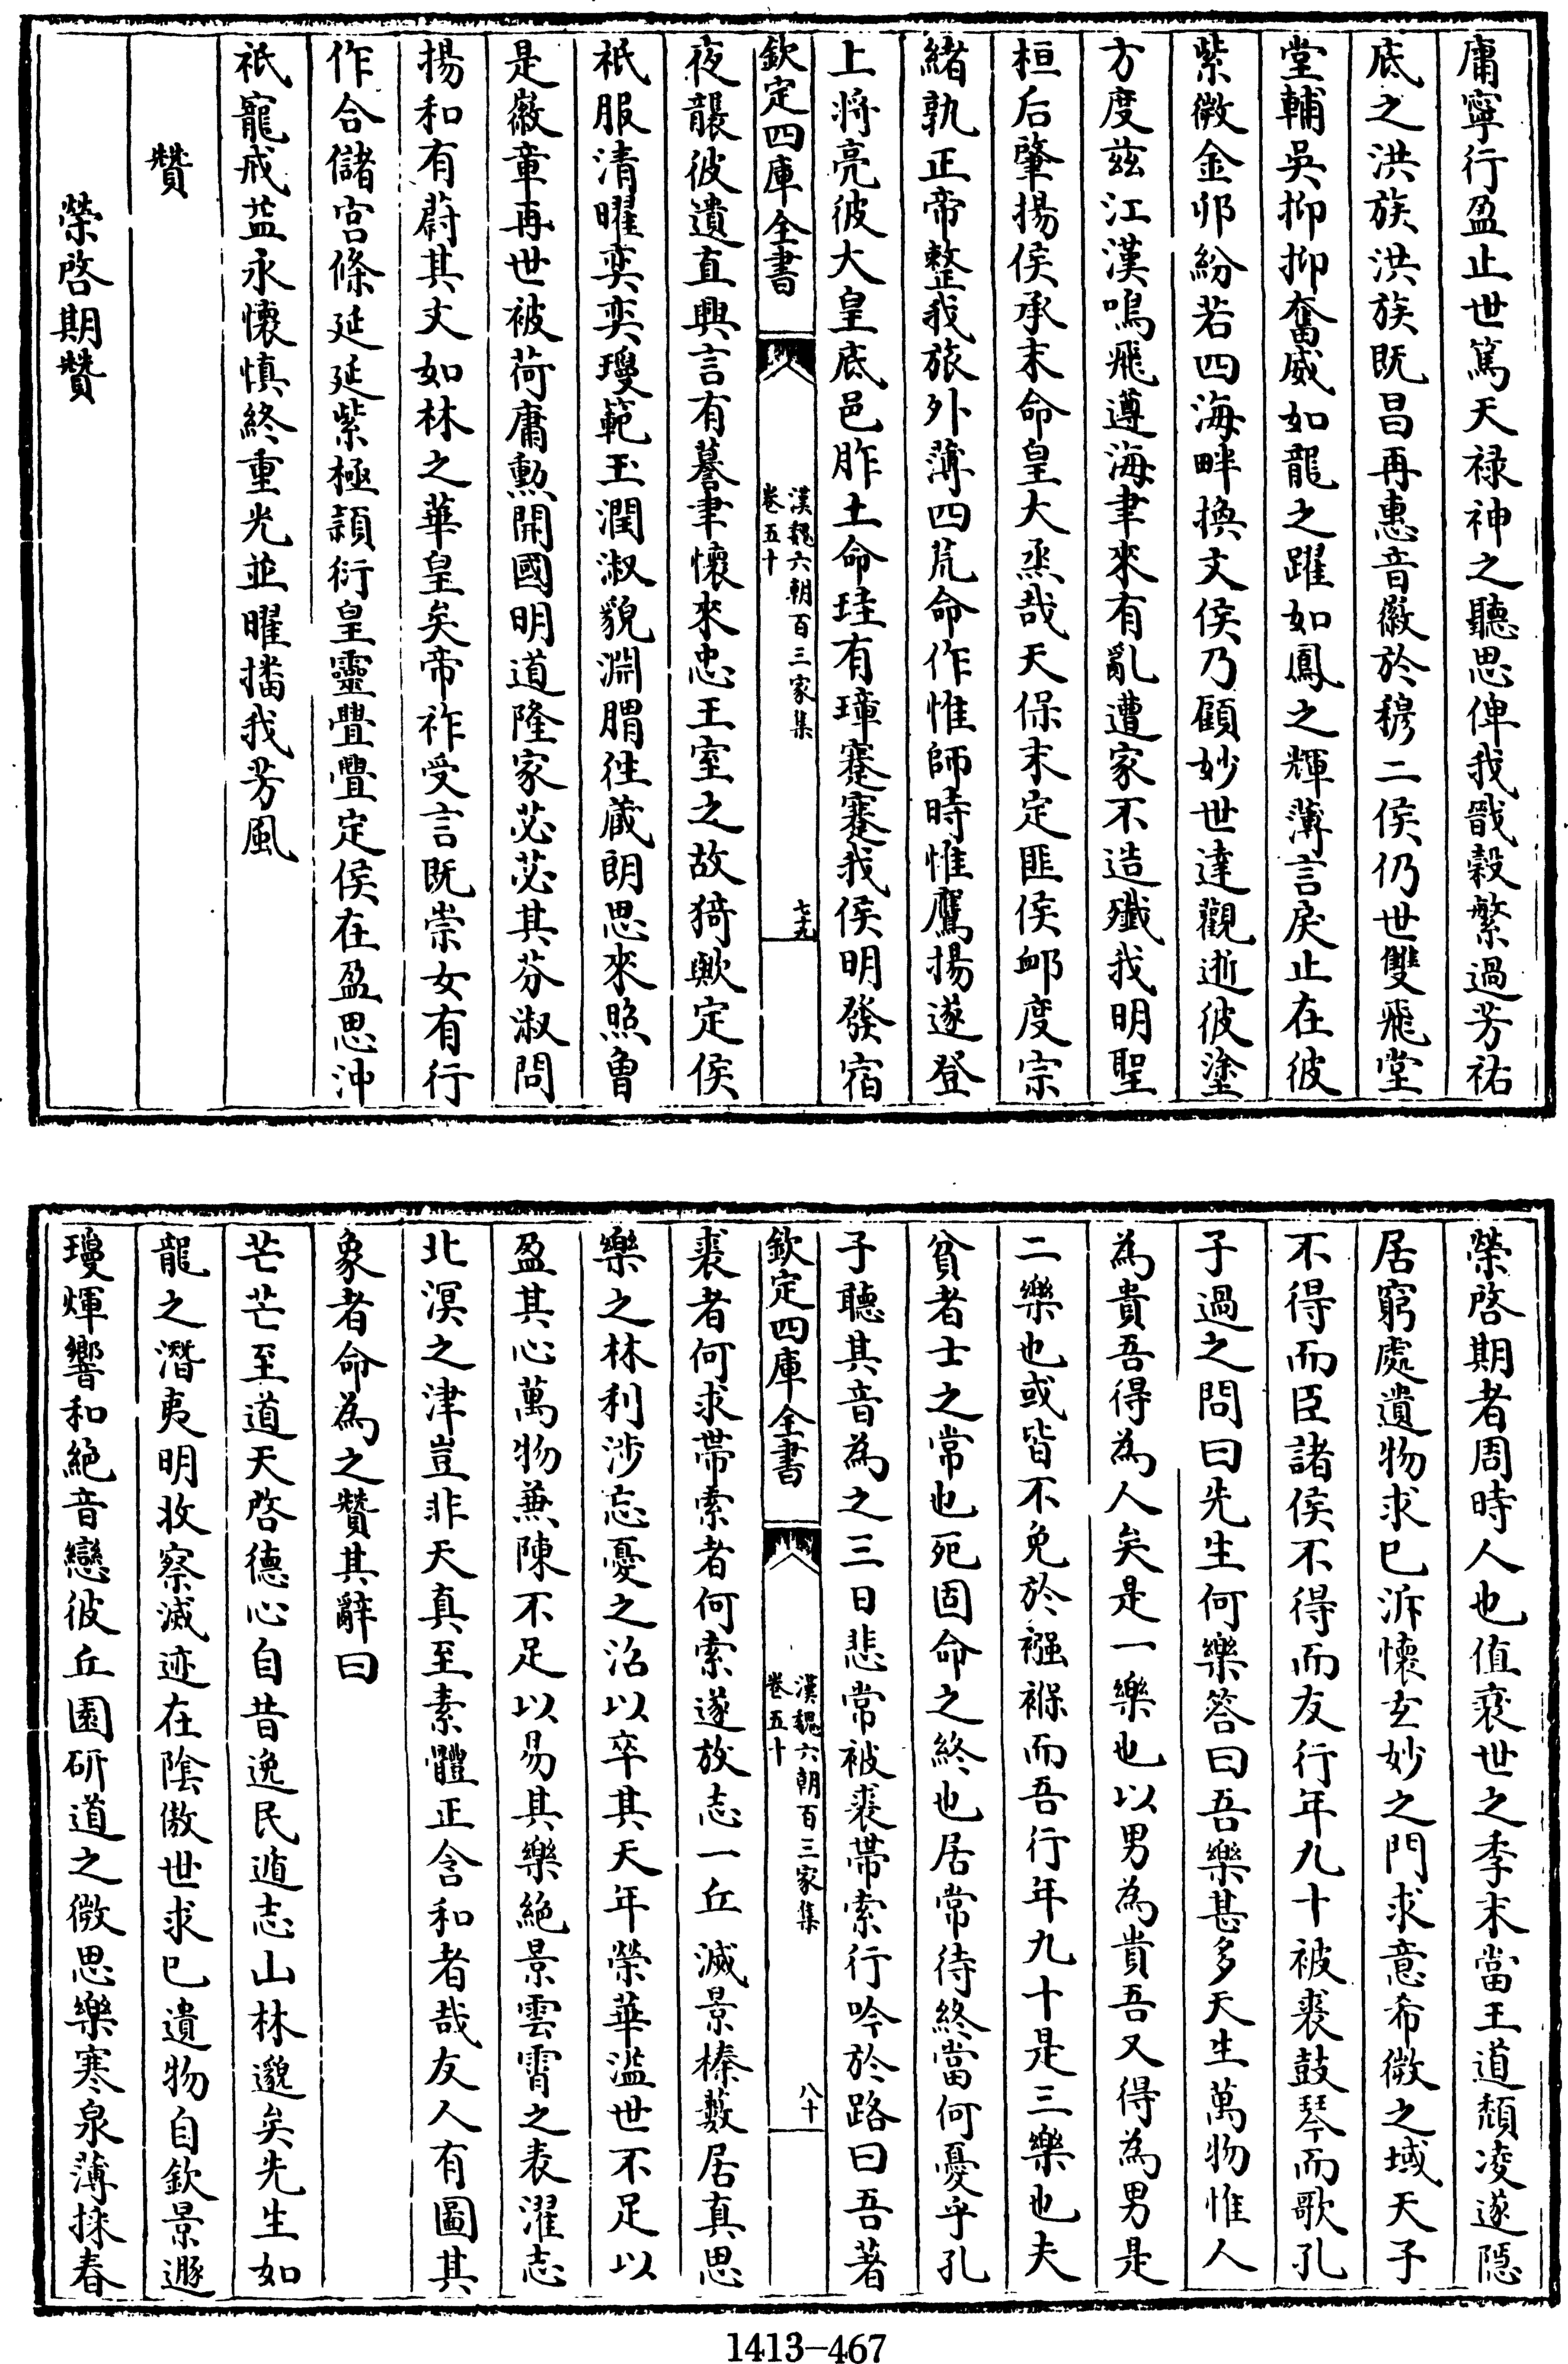 庸寧行盈止世篤天禄神之聽思俾我戩穀繁過芳祐
底之洪族洪族既昌再惠音徽於穆二侯仍世雙飛堂
堂輔吳抑抑奮威如龍之躍如鳳之輝薄言戾止在彼
紫微金邜紛若四海畔換文侯乃顧妙世達觀逝彼塗
方度兹江漢鳴飛遵海聿來有亂遭家不造殲我明聖
桓后肇揚侯承末命皇大烝哉天保未定匪侯䘏度宗
緒孰正帝整我旅外薄四荒命作惟師時惟鷹揚遂登
上將亮彼大皇底邑胙土命珪有璋蹇蹇我侯明發宿
欽定四庫全書
漢魏六朝百三家集
卷五十
七十九
夜襲彼遺直興言有謩聿懷來忠王室之故猗歟定侯
祇服清曜奕奕瓊範玉潤淑貌淵膶徃蔵朗思來照曾
是徽章再世被荷庸勲開國明道隆家苾苾其芬淑問
揚和有蔚其文如林之華皇矣帝祚受言既崇女有行
作合儲宫條延延紫極頴衍皇靈亹亹定侯在盈思沖
祇寵戒益永懷慎終重光並曜播我芳風
贊
榮啓期贊
榮啓期者周時人也值衰世之季末當王道頽凌遂隱
居窮處遺物求已泝懷玄妙之門求意希微之域天子
不得而臣諸侯不得而友行年九十被裘鼓琴而歌孔
子過之問曰先生何樂答曰吾樂甚多天生萬物惟人
為貴吾得為人矣是一樂也以男為貴吾又得為男是
二樂也或皆不免於襁褓而吾行年九十是三樂也夫
貧者士之常也死固命之終也居常待終當何憂乎孔
子聽其音為之三日悲常被裘帶索行吟於路曰吾著
欽定四庫全書
漢魏六朝百三家集
卷五十
八十
裘者何求帶索者何索遂放志一丘滅景榛藪居真思
樂之林利涉忘憂之沼以卒其天年榮華溢世不足以
盈其心萬物兼陳不足以易其樂絶景雲霄之表濯志
北溟之津豈非天真至素體正含和者哉友人有圖其
象者命為之贊其辭曰
芒芒至道天啓德心自昔逸民遁志山林邈矣先生如
龍之潛夷明收察滅迹在陰傲世求已遺物自欽景遯
瓊煇響和絶音戀彼丘園研道之微思樂寒泉薄採春
1413-467